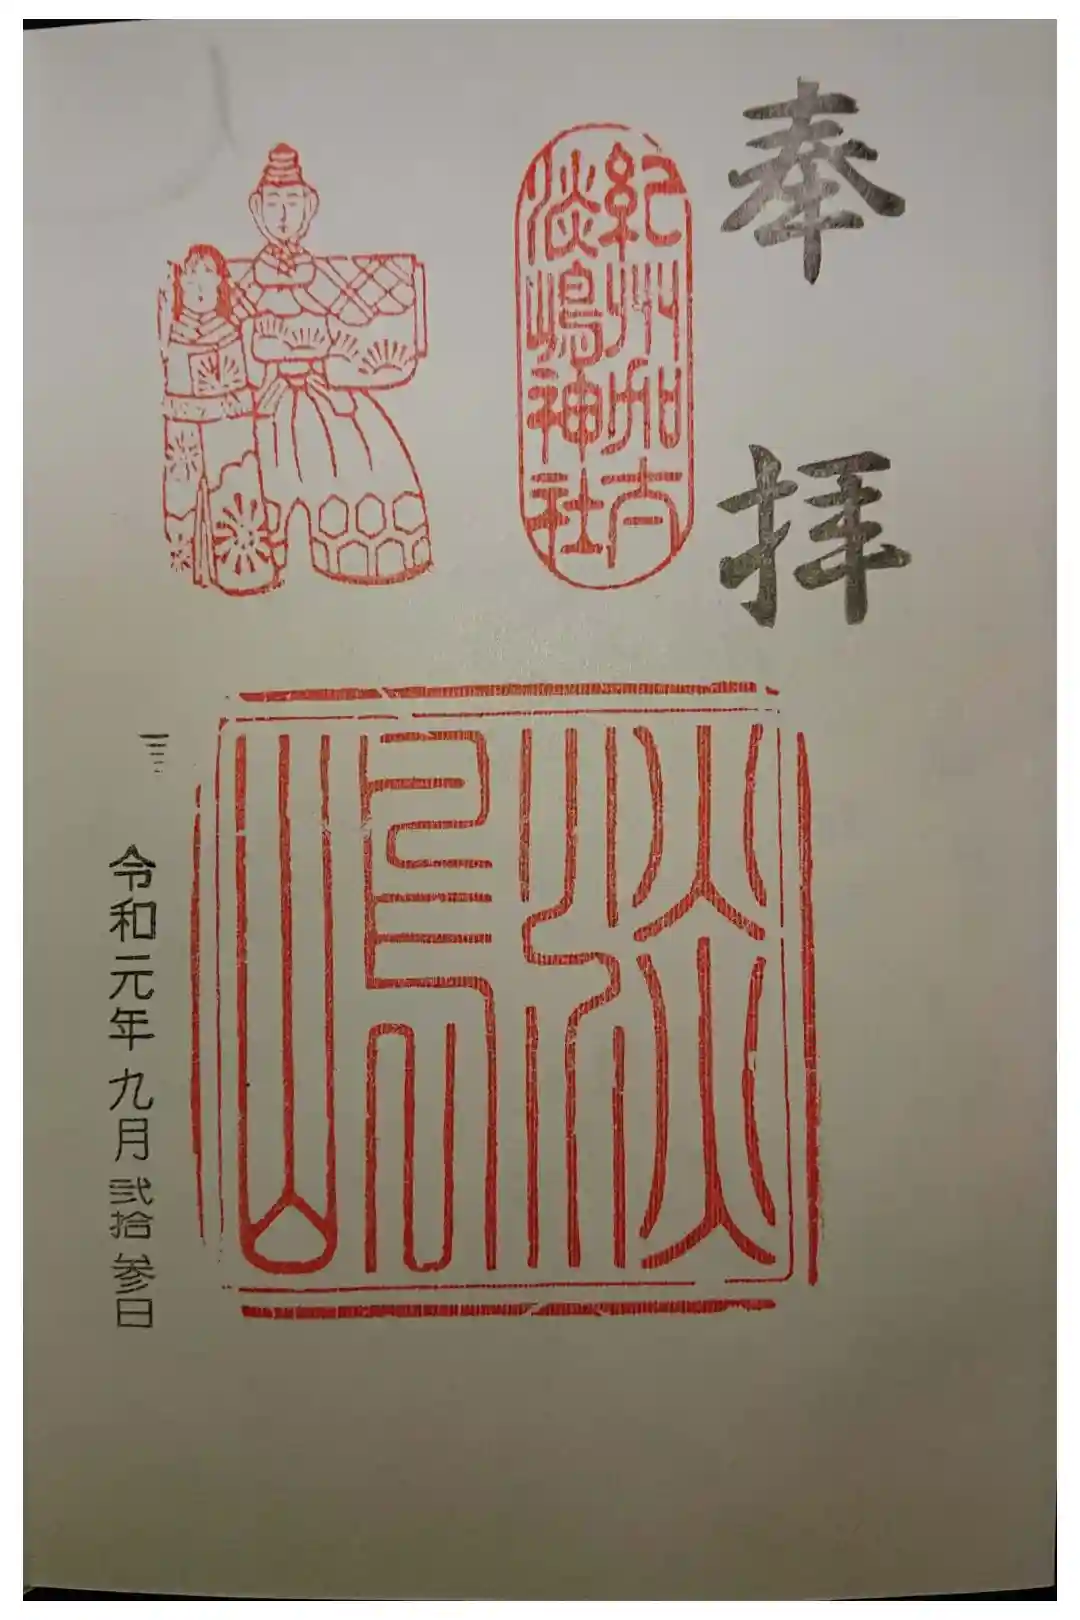 奉拝
紀州加太
淡嶋神社
淡嶋
令和元年九月弐拾参日